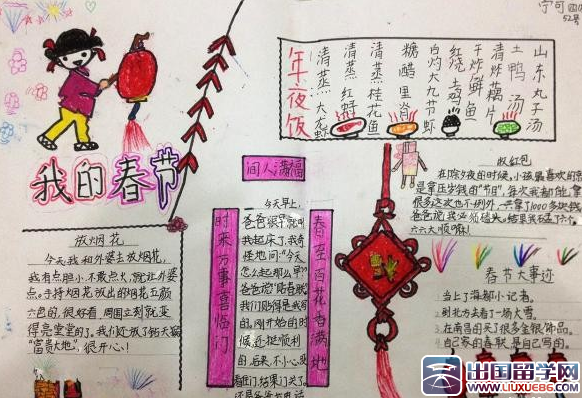 宁可
52号
我的春节
放烟花
今天我和外婆去放烟花,
我有点胆小,不敢点火,就让外婆
点。手持烟花放出的烟花五颜
六色的,很好看,周围立刻就变
得亮堂堂的了。我们还放了钻天猴
"富贵大地",很开心!
间人满福
时来万事喜临门
春至百花香满地
今天早上,
爸爸很早就
我起床了,我奇
怪地问:"今天
怎么起那么早"
爸爸说"贴春联"
我们贴得是我写
的,刚开始的时
候还挺顺利
的,后来,不小心
结果门关了。
年夜饭
清蒸大龙虾
清蒸红蟳
清蒸桂花鱼
糖醋里脊
白灼大九节虾
红烧鸡
干炸鲜鱼
清炸藕片
土鸭汤
山东丸子汤
收红包
在除夕夜的时候,小孩最喜欢的
是拿压岁钱的"节目",每次我都能拿
很多这次也不例外,一共拿了1000多块钱
六六大顺嘛!
春节大事迹
1.当上了海都小记者。
2.到北方去看了一场大雪。
3.在南宫的买了很多金银饰品。
4.自己家的春联,是自己写的。
出国留学网
www.liuxue86.com